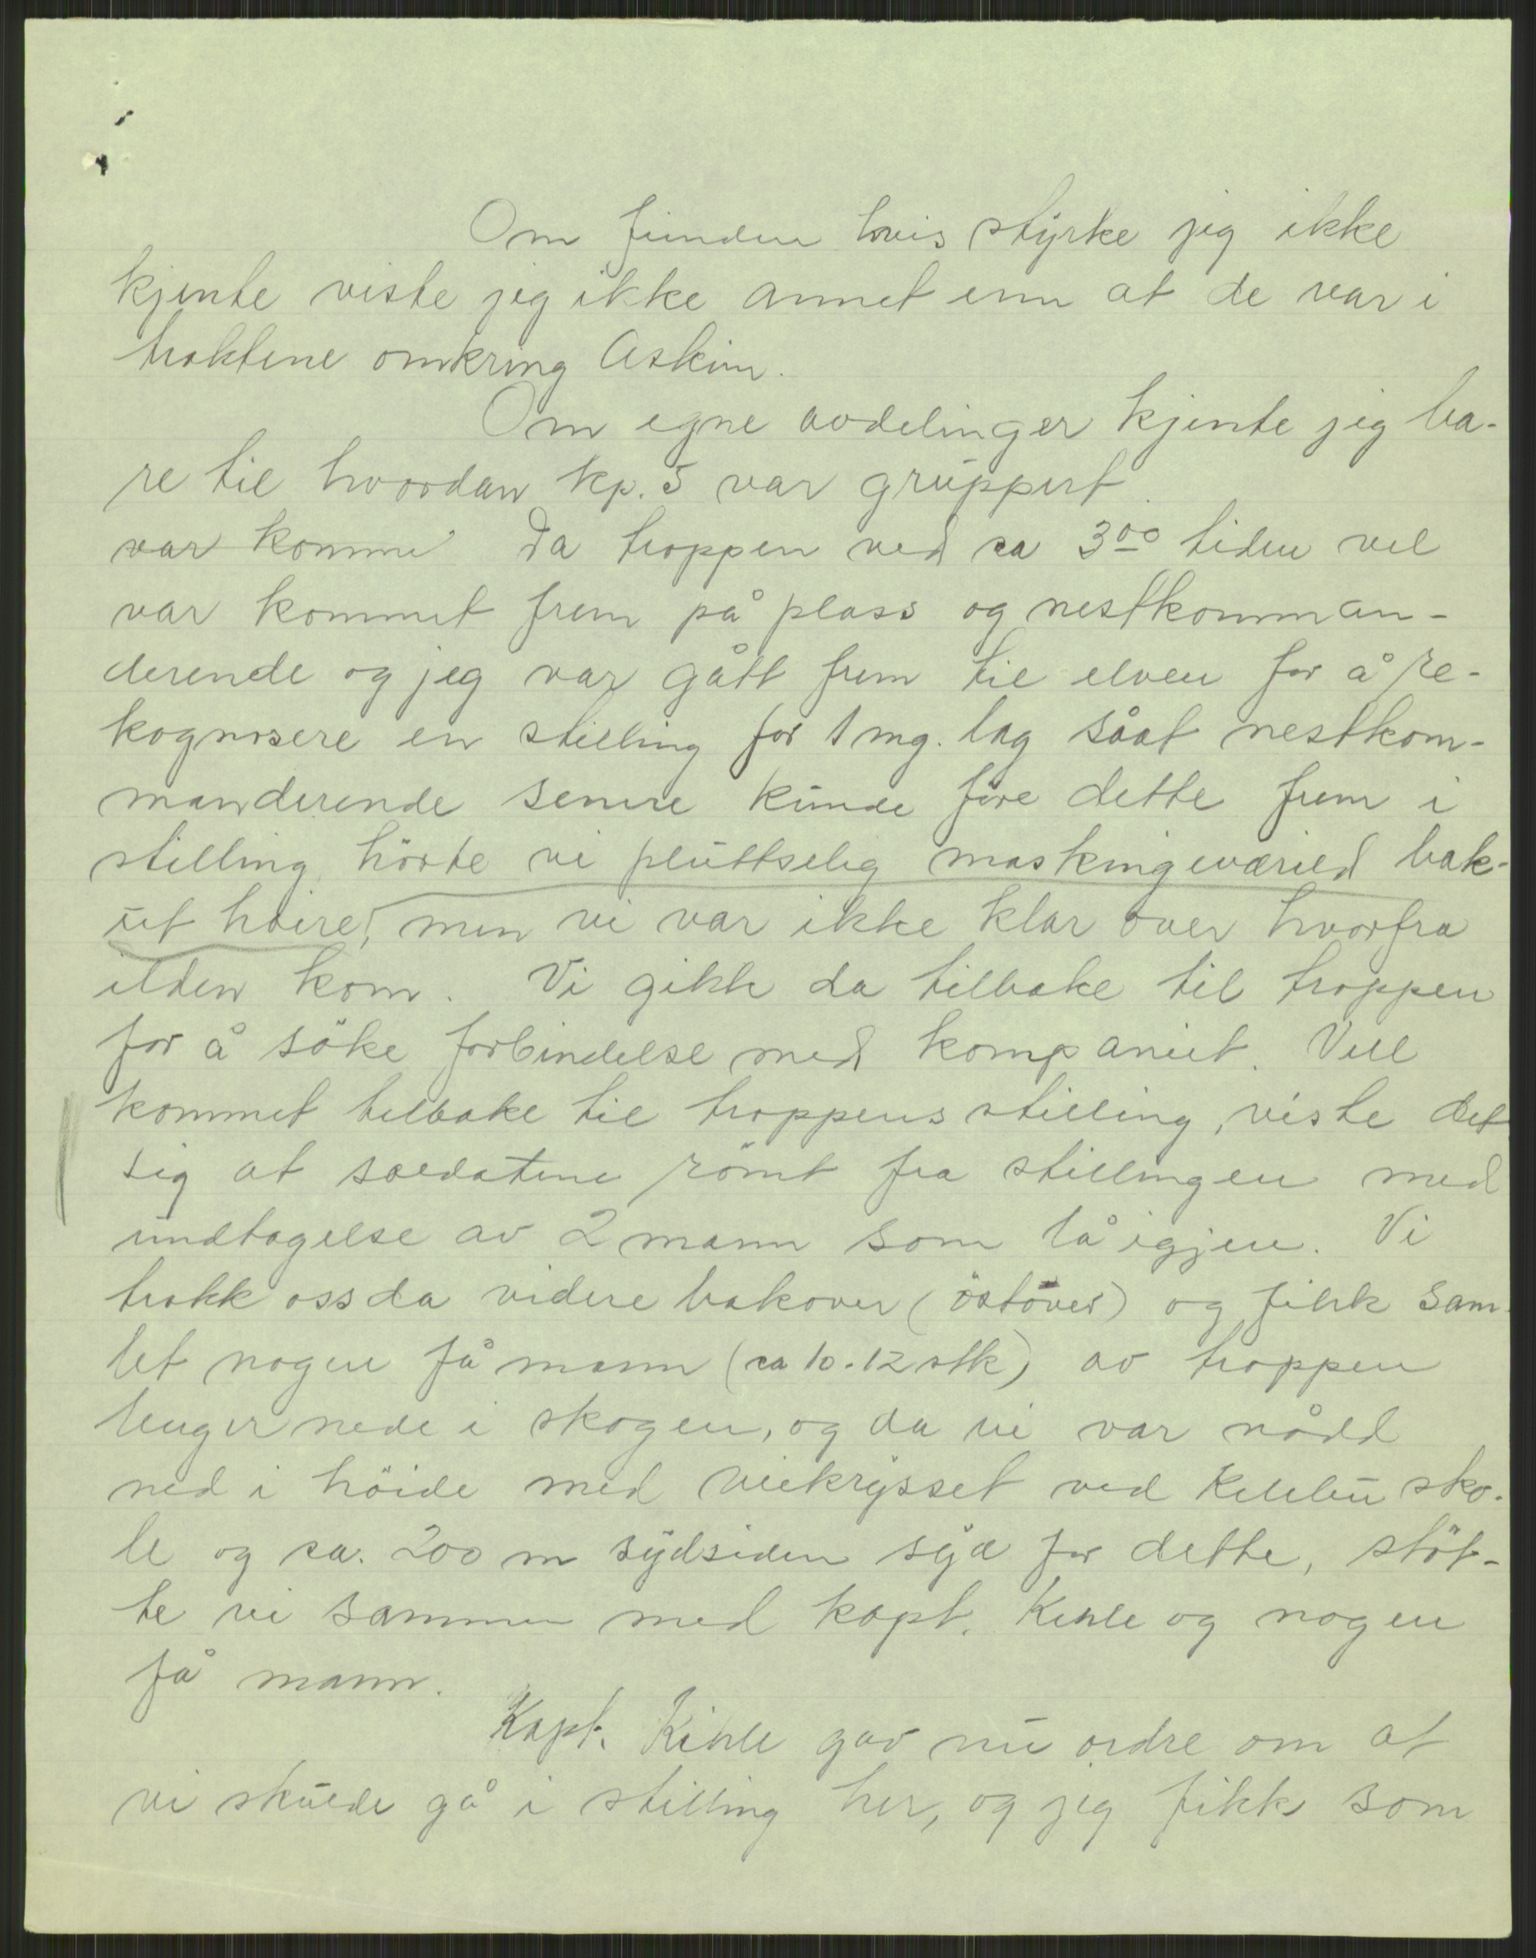 Om fienden hvis styrke jeg ikke
kjente viste jeg ikke annet enn at de var i
traktene omkring Askim.
Om egne avdelinger kjente jeg ba-
re til hvordan kp. 5 var gruppert.
var komme Da troppen ved ca 3⁰⁰ tiden vel
var kommet frem på plass og nestkomman-
derende og jeg var gått frem til elven for å re-
kognosere en stilling for 1 mg. lag såat nestkom-
manderende senere kunde føre dette frem i
stilling hörte vi pluttselig maskingeværild bak-
ut høire, men vi var ikke klar over hvorfra
ilden kom. Vi gikk da tilbake til troppen
for å söke forbindelse med kompaniet. Vell
kommet tilbake til troppens stilling, viste det
sig at soldatene römt fra stillingen med
undtagelse av 2 mann som lå igjen. Vi
trakk oss da videre bakover (östover) og fikk sam-
let nogen få mann (ca 10-12 stk) av troppen
lenger nede i skogen, og da vi var nådd
ned i höide med veikrysset ved Kykkelsrud sko-
le og ca. 200 m sydsiden syd for dette, stöt-
te vi sammen med kapt. Kihle og nogen
få mann.
Kapt. Kihle gav nu ordre om at
vi skulde gå i stilling her, og jeg fikk som